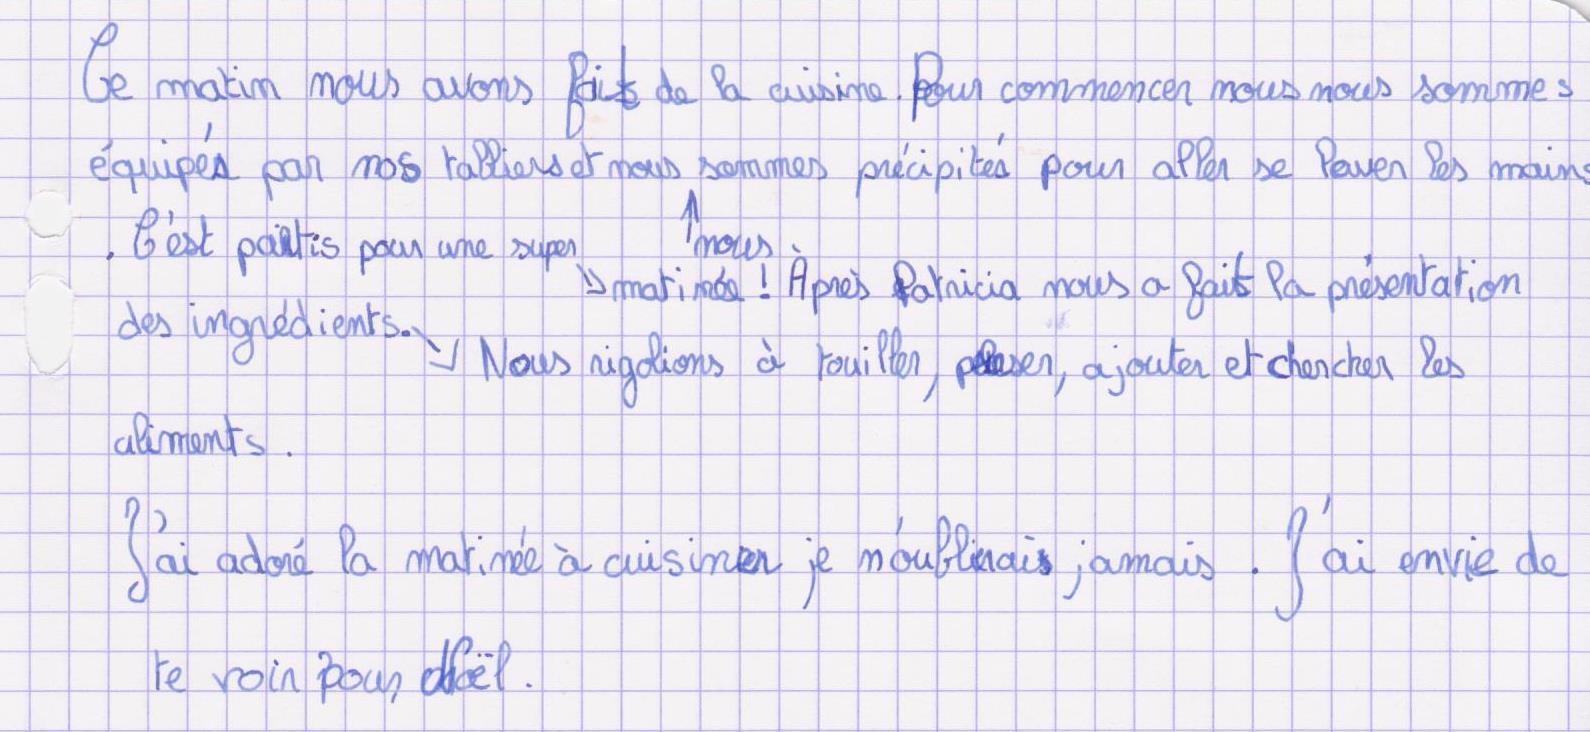 Ce matin nous avons fait de la cuisine. Pour commencer nous nous sommes
équipés par nos talliers et nous sommes précipités pour aller se laver les mains
. C'est partis pour une super
nous
matinée ! Après Patricia nous a fait la présentation
des ingrédients.
Nous rigolions à touiller, peser, ajouter et chercher les
aliments.
J'ai adoré la matinée à cuisiner je n'oublirais jamais. J'ai envie de
te voir pour Noël.